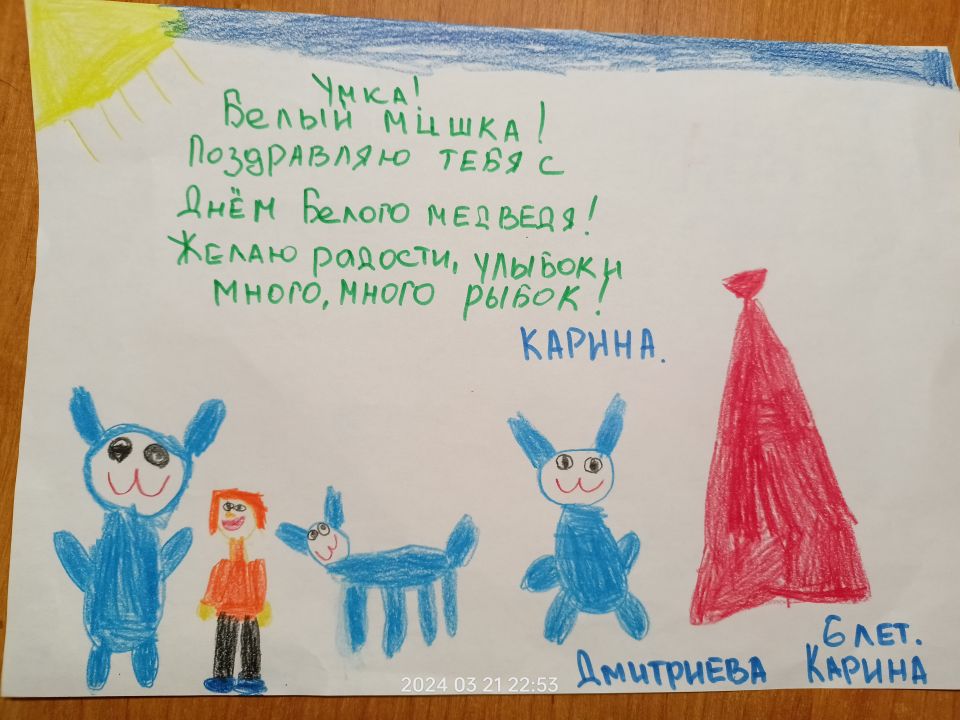 Умка!
Белый мишка!
Поздравляю тебя с
Днём Белого медведя!
Желаю радости, улыбок и
много, много рыбок!
КАРИНА.
6 лет.
Дмитриева Карина
2024 03 21 22:53